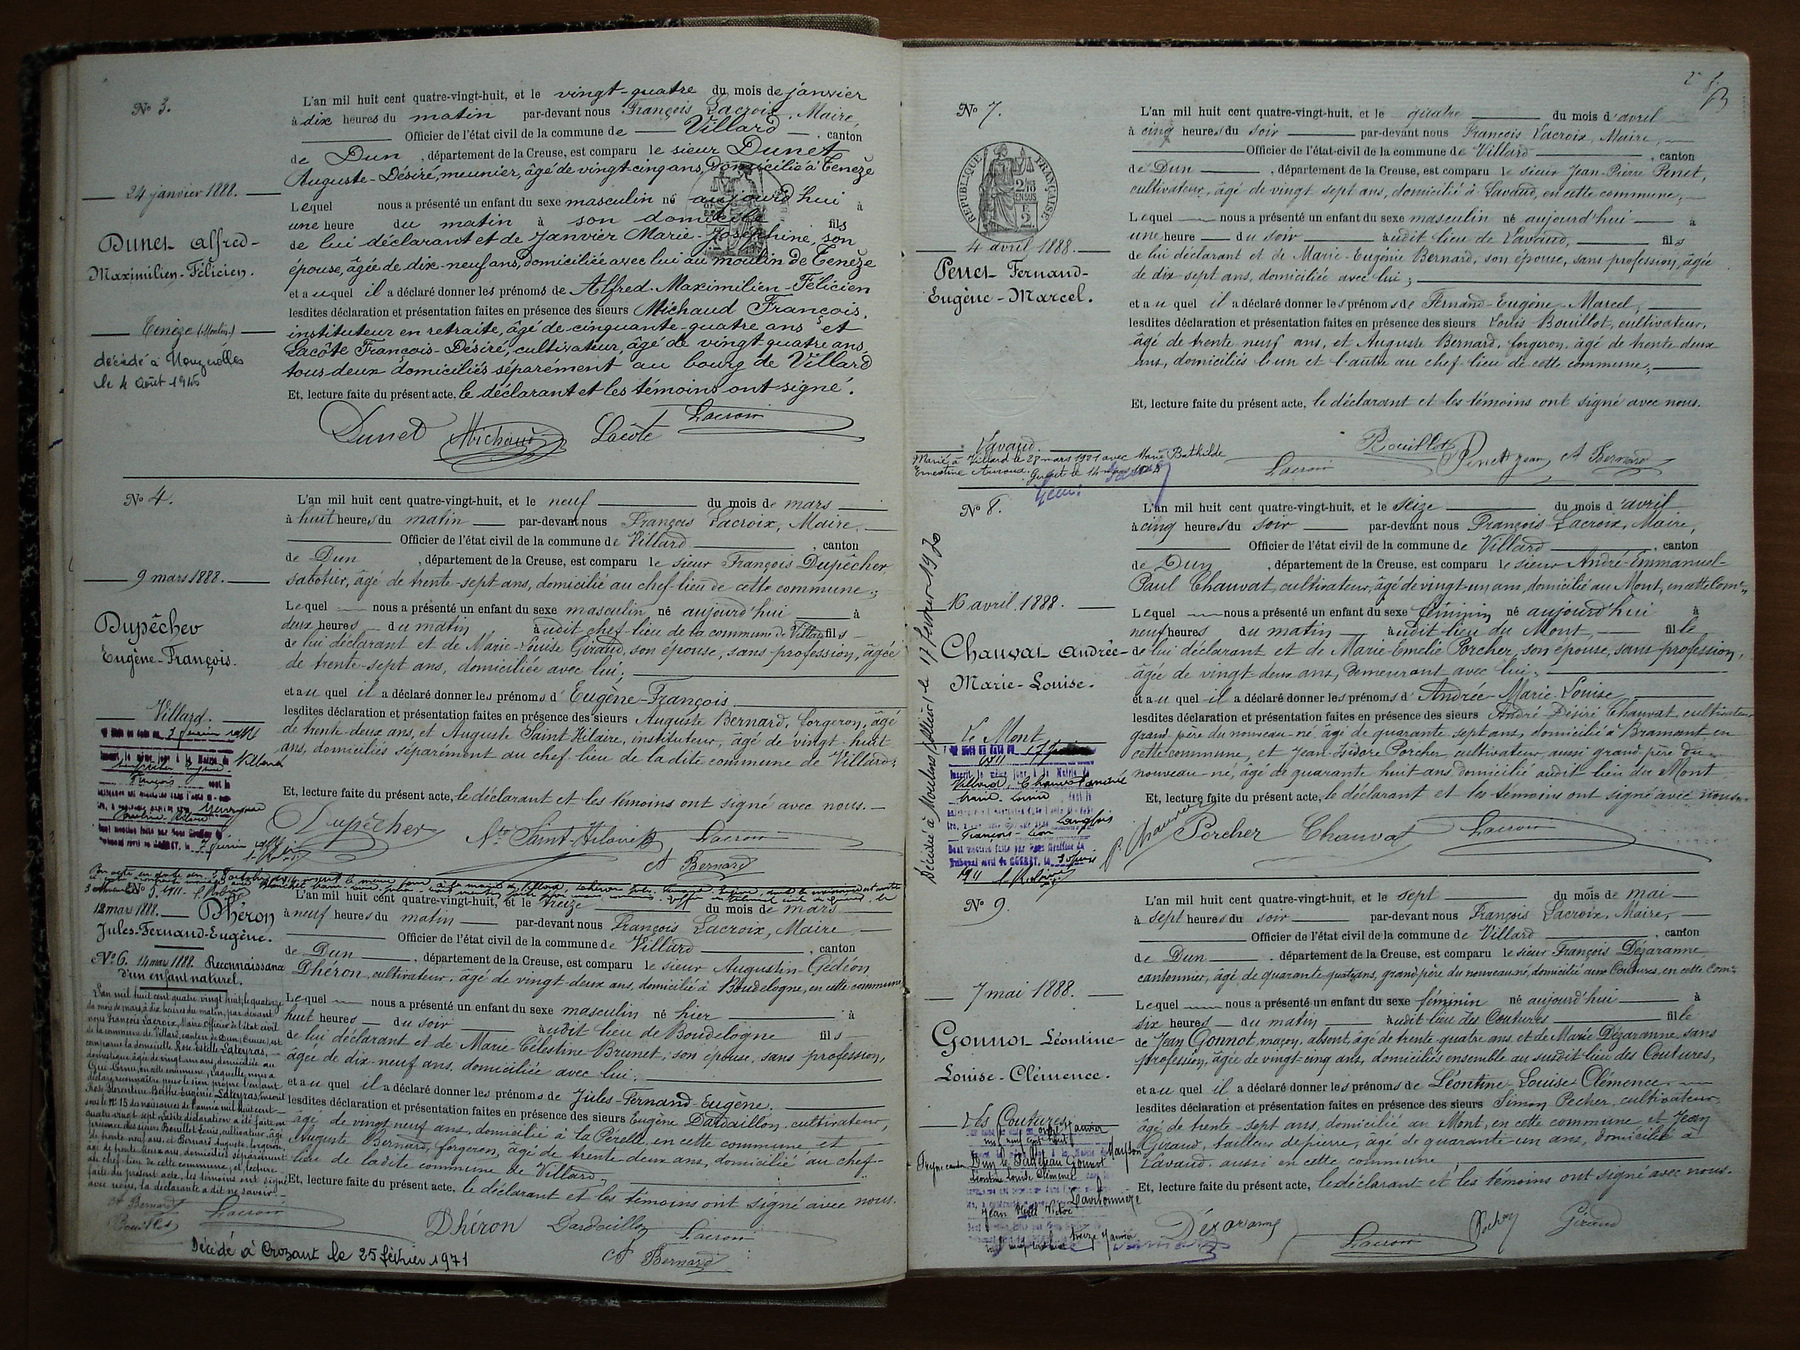 No 3.
24 janvier 1888.
Dunet Alfred-
Maximilien-Félicien.
Tenèze (Moulin)
décédé à
le 4 Août 1946
L'an mil huit cent quatre-vingt-huit, et le vingt-quatre du mois de janvier
à dix heures du matin par-devant nous François Lacroix, Maire,
Officier de l'état civil de la commune de Villard, canton
de Dun, département de la Creuse, est comparu le sieur Dunet
Auguste-Désiré, meunier, âgé de vingt-cinq ans, domicilié à Tenèze
Lequel nous a présenté un enfant du sexe masculin né aujourd'hui à
une heure du matin à son domicile fils
de lui déclarant et de Janvier Marie-Joséphine, son
épouse, âgée de dix-neuf ans, domiciliée avec lui au moulin de Tenèze
et au quel il a déclaré donner les prénoms de Alfred-Maximilien-Félicien
lesdites déclaration et présentation faites en présence des sieurs Michaud François,
instituteur en retraite, âgé de cinquante-quatre ans et
Lacôte François-Désiré, cultivateur, âgé de vingt-quatre ans,
tous deux domiciliés séparément au bourg de Villard
Et, lecture faite du présent acte, le déclarant et les témoins ont signé.
Dunet Michaud Lacôte Lacroix
No 4.
9 mars 1888.
Dupêcher
Eugène-François.
Villard.
L'an mil huit cent quatre-vingt-huit, et le neuf du mois de mars
à huit heures du matin par-devant nous François Lacroix, Maire
Officier de l'état civil de la commune de Villard, canton
de Dun, département de la Creuse, est comparu le sieur François Dupêcher
sabotier, âgé de trente-sept ans, domicilié au chef-lieu de cette commune;
Lequel nous a présenté un enfant du sexe masculin né aujourd'hui à
deux heures du matin audit chef-lieu de la commune de Villard fils
de lui déclarant et de Marie-Louise Giraud, son épouse, sans profession, âgée
de trente-sept ans, domiciliée avec lui;
et au quel il a déclaré donner les prénoms d'Eugène-François
lesdites déclaration et présentation faites en présence des sieurs Auguste Bernard, forgeron, âgé
de trente-deux ans, et Auguste Saint-Hilaire, instituteur, âgé de vingt-huit
ans, domiciliés séparément au chef-lieu de ladite commune de Villard;
Et, lecture faite du présent acte, le déclarant et les témoins ont signé avec nous.
Dupêcher Saint-Hilaire Lacroix
A Bernard
No 5.
12 mars 1888. Dhéron
Jules-Fernand-Eugène.
L'an mil huit cent quatre-vingt-huit, et le treize du mois de mars
à neuf heures du matin par-devant nous François Lacroix, Maire
Officier de l'état civil de la commune de Villard, canton
de Dun, département de la Creuse, est comparu le sieur Augustin-Gédéon
Dhéron, cultivateur, âgé de vingt-deux ans, domicilié à Boudelogne, en cette commune
Lequel nous a présenté un enfant du sexe masculin né hier à
huit heures du soir audit lieu de Boudelogne fils
de lui déclarant et de Marie-Célestine Brunet, son épouse, sans profession,
âgée de dix-neuf ans, domiciliée avec lui;
et au quel il a déclaré donner les prénoms de Jules-Fernand-Eugène.
lesdites déclaration et présentation faites en présence des sieurs Eugène Dardaillon, cultivateur,
âgé de vingt-neuf ans, domicilié à la Pérelle, en cette commune et
Auguste Bernard, forgeron, âgé de trente-deux ans, domicilié au chef-
lieu de ladite commune de Villard,
Et, lecture faite du présent acte, le déclarant et les témoins ont signé avec nous.
Dhéron Dardaillon Lacroix
A Bernard
No 6. 14 mars 1888. Reconnaissance
d'un enfant naturel.
L'an mil huit cent quatre vingt huit, le quatorze
du mois de mars, à dix heures du matin, par-devant
nous François Lacroix, Maire, Officier de l'état civil
de la commune de Villard, canton de Dun (Creuse), est
comparue la demoiselle Rose-Estelle Lateyras,
domestique, âgée de vingt un ans, domiciliée au
en cette commune, laquelle nous a
déclaré reconnaître pour le sien propre l'enfant
Rose-Florentine-Berthe-Eugénie Lateyras, inscrit
sous le No 15 des naissances de l'année mil huit cent
quatre vingt sept. Ladite déclaration a été faite en
présence des sieurs Bouillot Louis, cultivateur, âgé
de trente neuf ans, et Bernard Auguste, forgeron,
âgé de trente deux ans, domiciliés séparément
au chef-lieu de cette commune, et lecture
faite du présent acte, les témoins ont signé
avec nous, la déclarante a dit ne savoir.
A Bernard Lacroix
Bouillot
Décédé à Crozant le 25 février 1971
No 7.
RÉPUBLIQUE FRANÇAISE
4 avril 1888.
Penet Fernand-
Eugène-Marcel.
Lavaud.
Marié à Villard le 28 mars 1921 avec Marie Bathilde
Ernestine
L'an mil huit cent quatre-vingt-huit, et le quatre du mois d'avril
à cinq heures du soir par-devant nous François Lacroix, Maire,
Officier de l'état-civil de la commune de Villard, canton
de Dun, département de la Creuse, est comparu le sieur Jean-Pierre Penet,
cultivateur, âgé de vingt sept ans, domicilié à Lavaud, en cette commune,
Lequel nous a présenté un enfant du sexe masculin né aujourd'hui à
une heure du soir audit lieu de Lavaud, fils
de lui déclarant et de Marie-Eugénie Bernard, son épouse, sans profession, âgée
de dix-sept ans, domiciliée avec lui;
et au quel il a déclaré donner les prénoms de Fernand-Eugène-Marcel,
lesdites déclaration et présentation faites en présence des sieurs Louis Bouillot, cultivateur,
âgé de trente neuf ans, et Auguste Bernard, forgeron, âgé de trente-deux
ans, domiciliés l'un et l'autre au chef-lieu de cette commune;
Et, lecture faite du présent acte, le déclarant et les témoins ont signé avec nous.
Bouillot
Lacroix Penet Jean A Bernard
No 8.
16 avril 1888.
Chauvat Andrée-
Marie-Louise.
Le Mont
Décédée à Moulins (Allier) le 17 février 1970
L'an mil huit cent quatre-vingt-huit, et le seize du mois d'avril
à cinq heures du soir par-devant nous François Lacroix, Maire,
Officier de l'état civil de la commune de Villard, canton
de Dun, département de la Creuse, est comparu le sieur André-Emmanuel-
Paul Chauvat, cultivateur, âgé de vingt-un ans, domicilié au Mont, en cette Comne,
Lequel nous a présenté un enfant du sexe féminin né aujourd'hui à
neuf heures du matin audit lieu du Mont, fille
de lui déclarant et de Marie-Emélie Porcher, son épouse, sans profession,
âgée de vingt-deux ans, demeurant avec lui;
et au quel il a déclaré donner les prénoms d'Andrée-Marie-Louise
lesdites déclaration et présentation faites en présence des sieurs André Désiré Chauvat, cultivateur
grand père du nouveau-né, âgé de quarante sept ans, domicilié à Bramant en
cette commune, et Jean-Isidore Porcher, cultivateur, aussi grand père du
nouveau-né, âgé de quarante huit ans, domicilié audit lieu du Mont
Et, lecture faite du présent acte, le déclarant et les témoins ont signé avec nous.
P. Chauvat Porcher Chauvat Lacroix
No 9.
7 mai 1888.
Gonnot Léontine-
Louise-Clémence.
Les Coutures.
L'an mil huit cent quatre-vingt-huit, et le sept du mois de mai
à sept heures du soir par-devant nous François Lacroix, Maire,
Officier de l'état-civil de la commune de Villard, canton
de Dun, département de la Creuse, est comparu le sieur François Dézaranne
cantonnier, âgé de quarante quatre ans, grand père du nouveau né, domicilié aux Coutures, en cette Comne
Lequel nous a présenté un enfant du sexe féminin né aujourd'hui à
six heures du matin audit lieu des Coutures fille
de Jean Gonnot, maçon, absent, âgé de trente-quatre ans, et de Marie Dézaranne sans
profession, âgée de vingt-cinq ans, domiciliés ensemble au susdit lieu des Coutures,
et au quel il a déclaré donner les prénoms de Léontine-Louise-Clémence.
lesdites déclaration et présentation faites en présence des sieurs Simon Pecher, cultivateur,
âgé de trente-sept ans, domicilié au Mont, en cette commune et Jean
Giraud, tailleur de pierre, âgé de quarante-un ans, domicilié à
Lavaud, aussi en cette commune
Et, lecture faite du présent acte, le déclarant et les témoins ont signé avec nous.
Dézaranne Lacroix Pecher Giraud